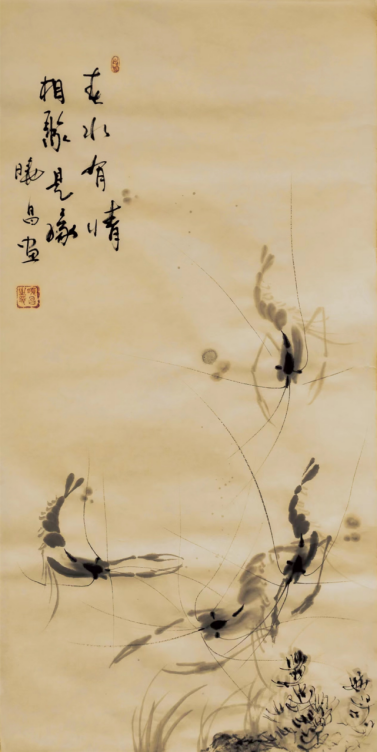 春水有情
相聚是缘
晓昌画